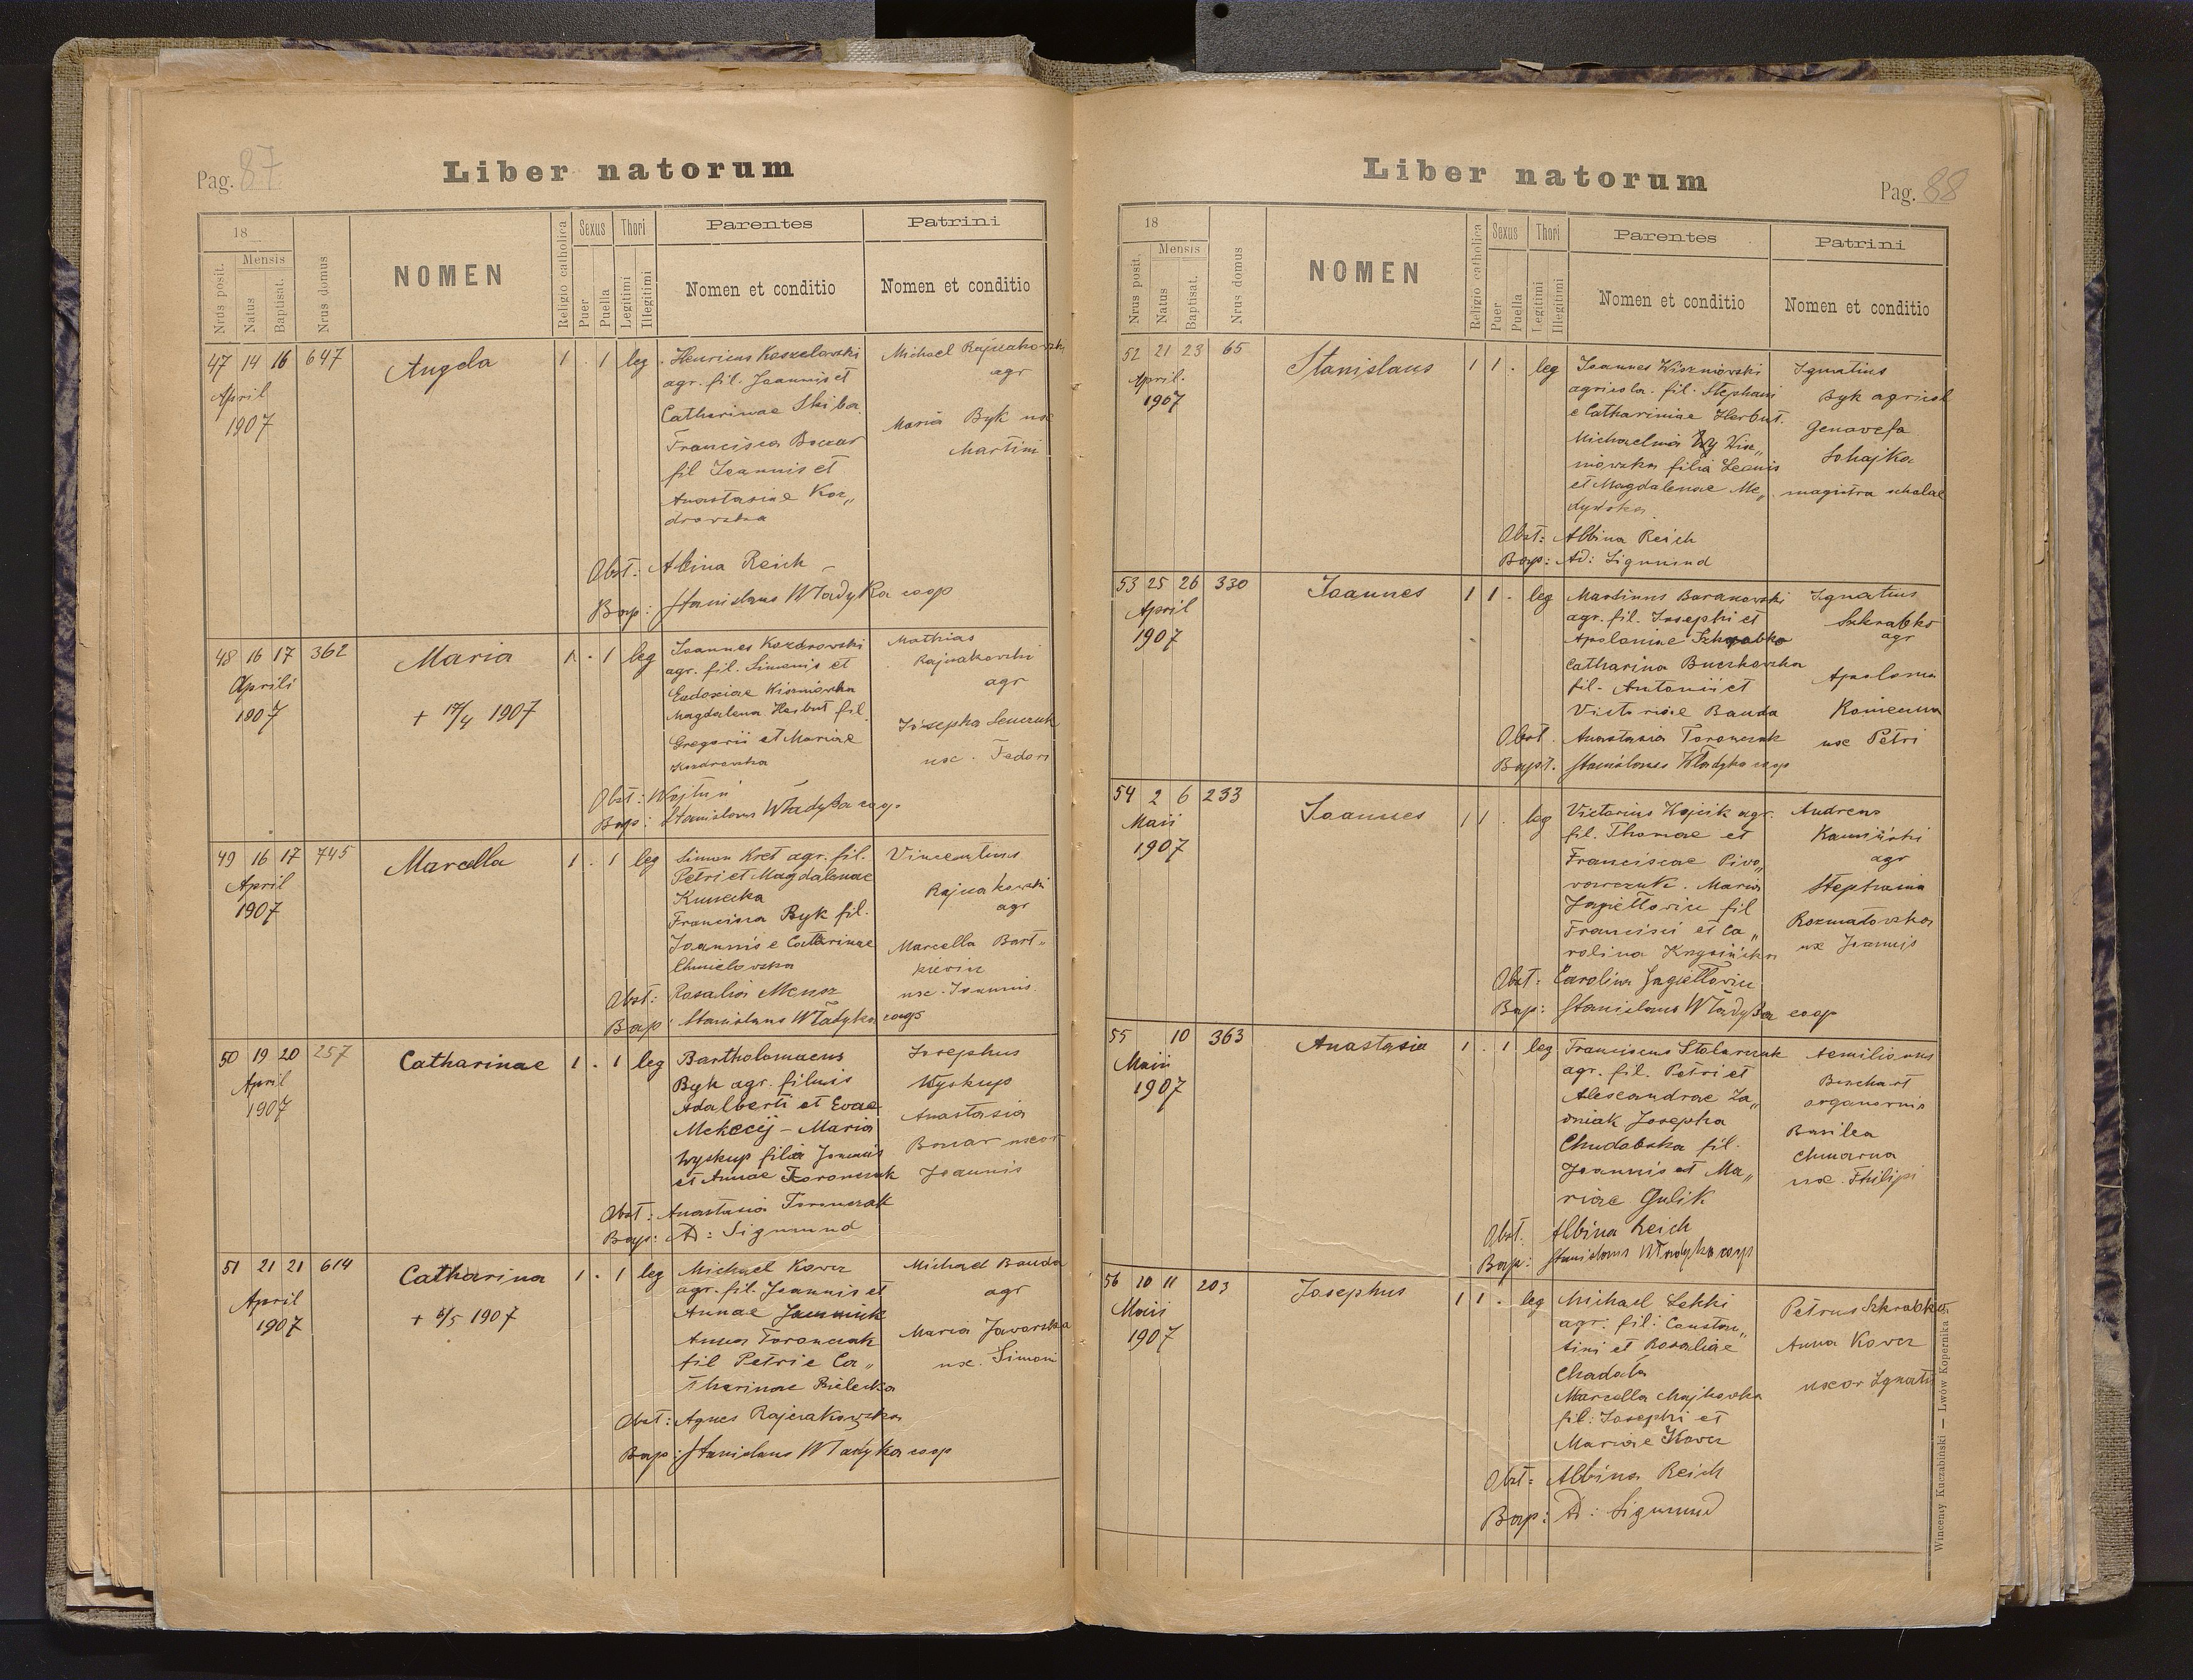 Pag. 87
Liber natorum
18
Nrus posit.
Mensis
Natus
Baptisat.
Nrus domus
NOMEN
Religio catholica
Sexus
Puer
Puella
Thori
Legitimi
Illegitimi
Parentes
Nomen et conditio
Patrini
Nomen et conditio
47 14 16 647
April
1907
Angela
1 . 1 leg
Henricus Koszelowski
agr. fil. Joannis et
Catharinae Skiba
Francisca Bocar
fil Joannis et
Anastasiae Koz„
drowska
Michael Rajnakowski
agr
Maria Byk ux
Martini
Obst: Albina Reich
Bap: Stanislaus Władyka coop
48 16 17 362
Aprili
1907
Maria
+ 17/4 1907
1 . 1 leg
Joannes Kozdrowski
agr. fil. Simonis et
Eudoxiae Wiszniowska
Magdalena Herbut fil.
Gregorii et Mariae
Kozdrowska
Mathias
Rajnakowski
agr
Josepha Senczuk
ux. Fedori
Obst: Wojtun
Bap: Stanislaus Władyka coop.
49 16 17 745
April
1907
Marcella
1 . 1 leg
Simon Kret agr. fil.
Petri et Magdalenae
Kunecka
Francisca Byk fil.
Joannis e Catharinae
Chmielowska
Vincentius
Rajnakowski
agr
Marcella Bart„
kiewicz
ux. Joannis
Obst: Rosalia Mensz
Bap: Stanislaus Władyka coop
50 19 20 257
April
1907
Catharinae
1 . 1 leg
Bartholomaeus
Byk agr. filius
Adalberti et Evae
Mekecij – Maria
Wyskup filia Joannis
et Annae Toronczuk
Josephus
Wyskup
Anastasia
Bocar uxor
Joannis
Obst: Anastasia Toronczuk
Bap: Ad: Sigmund
51 21 21 614
April
1907
Catharina
+ 6/5 1907
1 . 1 leg
Michael Kowcz
agr. fil. Joannis et
Annae
Anna Toronczuk
fil Petri e Ca„
tharinae Bielecka
Michael Bauda
agr
Maria Jaworska
ux. Simoni
Obst: Agnes Rajnakowska
Bap: Stanislaus Władyka coop
Liber natorum
Pag. 88
18
Nrus posit.
Mensis
Natus
Baptisat.
Nrus domus
NOMEN
Religio catholica
Sexus
Puer
Puella
Thori
Legitimi
Illegitimi
Parentes
Nomen et conditio
Patrini
Nomen et conditio
52 21 23 65
April.
1907
Stanislaus
1 1 . leg
Joannes Wiszniowski
agricola. fil. Stephani
e Catharinae Herbut.
Michaelina Wisz„
niowska filia Leonis
et Magdalenae Me„
dyńska.
Ignatius
Byk agricol
Genovefa
Sohajka
magistra scholae
Obst: Albina Reich
Bap: Ad: Sigmund
53 25 26 330
April
1907
Joannes
1 1 . leg
Martinus Baranowski
agr. fil. Josephi et
Apoloniae Szkrabko
Catharina Buczkowska
fil. Antonii et
Victoriae Bauda
Ignatius
Szkrabko
agr
Apolonia
Romeczna
ux Petri
Obst. Anastasia Toronczuk
Bapt. Stanislaus Władyka coop
54 2 6 233
Maii
1907
Joannes
1 1 . leg
Victorius Wojcik agr.
fil. Thomae et
Franciscae Piwo„
warczuk. Maria
Jagiełłowicz fil
Francisci et Ca„
rolina Krysińska
Andreas
Kamiński
agr
Stephania
Rozmatowska
ux Joannis
Obst: Carolina Jagiełłowicz
Bap: Stanislaus Władyka coop
55 10 363
Maii
1907
Anastasia
1 . 1 leg
Franciscus Stolarczuk
agr. fil. Petri et
Alexandrae Za„
dniak Josepha
Chudobska fil.
Joannis et Ma„
riae Gulik
Aemilianus
Borchart
organarius
Basilea
Chmarna
ux. Philipi
Obst. Albina Reich
Bap: Stanislaus Władyka coop
56 10 11 203
Maii
1907
Josephus
1 1 . leg
Michael Lekki
agr. fil: Constan„
tini et Rosaliae
Chadała
Marcella Majkowska
fil: Josephi et
Mariae Kowcz
Petrus Szkrabko
Anna Kowcz
uxor Ignati
Obst: Albina Reich
Bap: Ad: Sigmund
Wincenty Kuczabiński — Lwów Kopernika